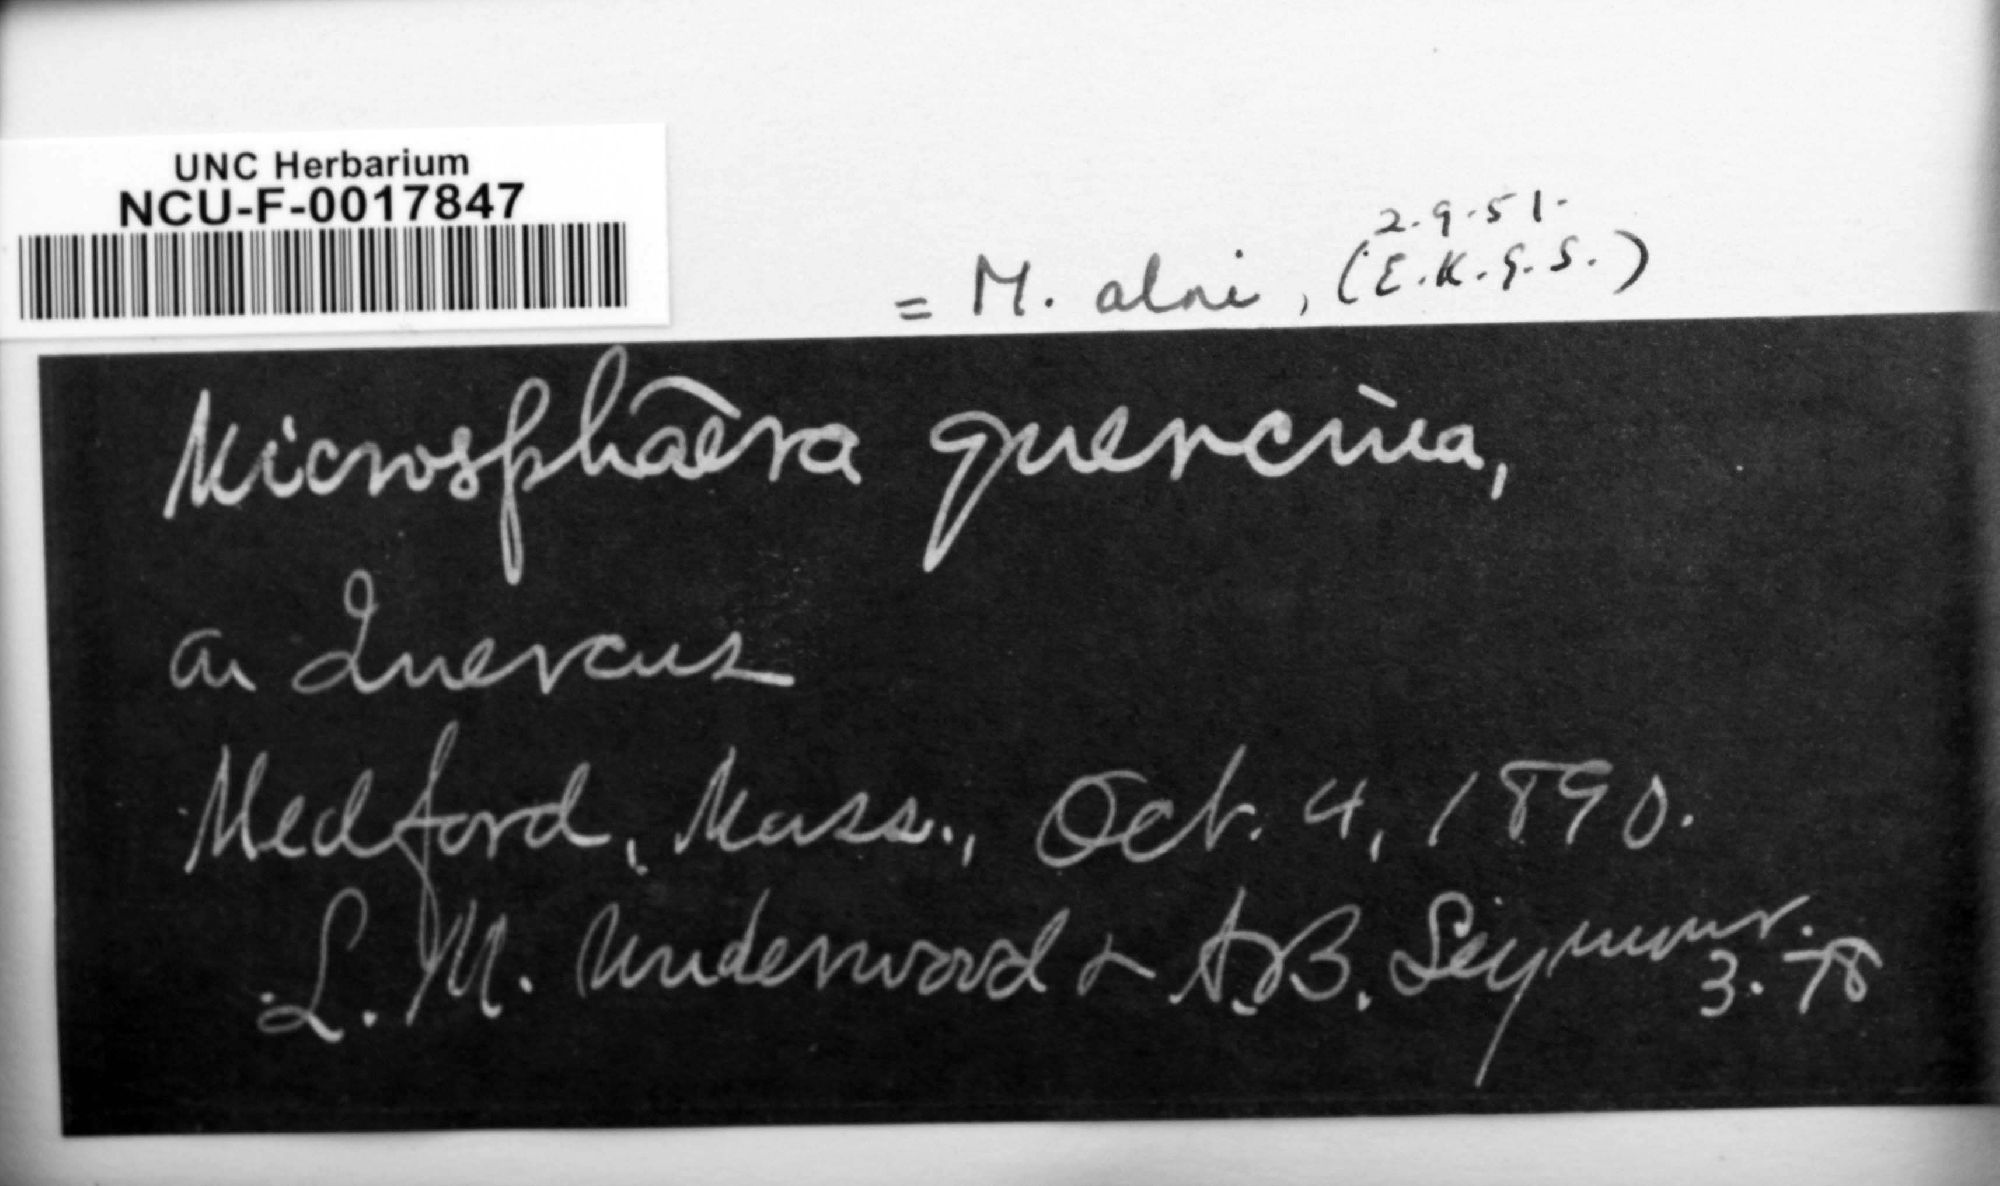 UNC Herbarium
NCU-F-0017847
2.9.51.
= M. alni, (E.K.G.S.)
Microsphaera quercina,
on Quercus
Medford, Mass., Oct. 4, 1890.
L. M. Underwood & A. B. Seymour.
3.78